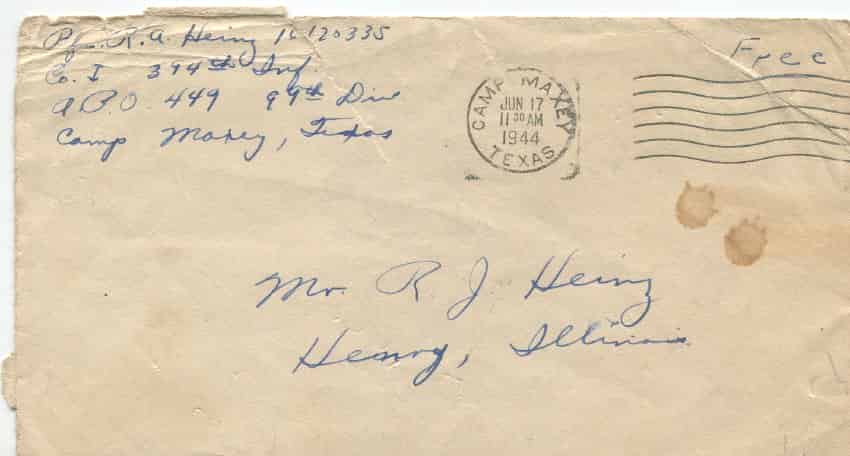 Pfc. R. A. Heinz 16120335
Co. I 394th Inf.
A.P.O. 449 99th Div
Camp Maxey, Texas
Free
CAMP MAXEY
JUN 17
11 30 AM
1944
TEXAS
Mr. R J Heinz
Henry, Illinois